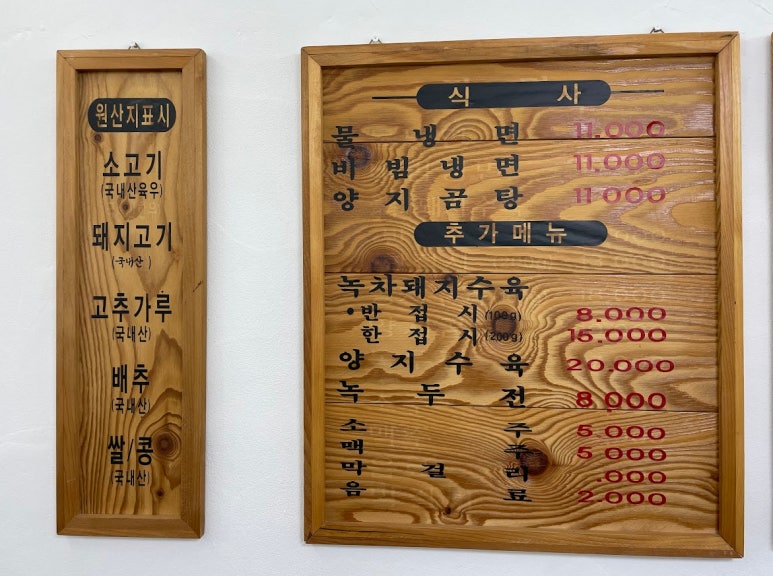 원산지표시
소고기
(국내산육우)
돼지고기
(국내산)
고추가루
(국내산)
배추
(국내산)
쌀/콩
(국내산)
식 사
물 냉 면 11.000
비 빔 냉 면 11,000
양 지 곰 탕 11 000
추가메뉴
녹차돼지수육
• 반 접 시 (100g) 8.000
한 접 시 (200g) 15.000
양 지 수 육 20.000
녹 두 전 8,000
소 주 5.000
맥 주 5 000
막 걸 리 .000
음 료 2.000